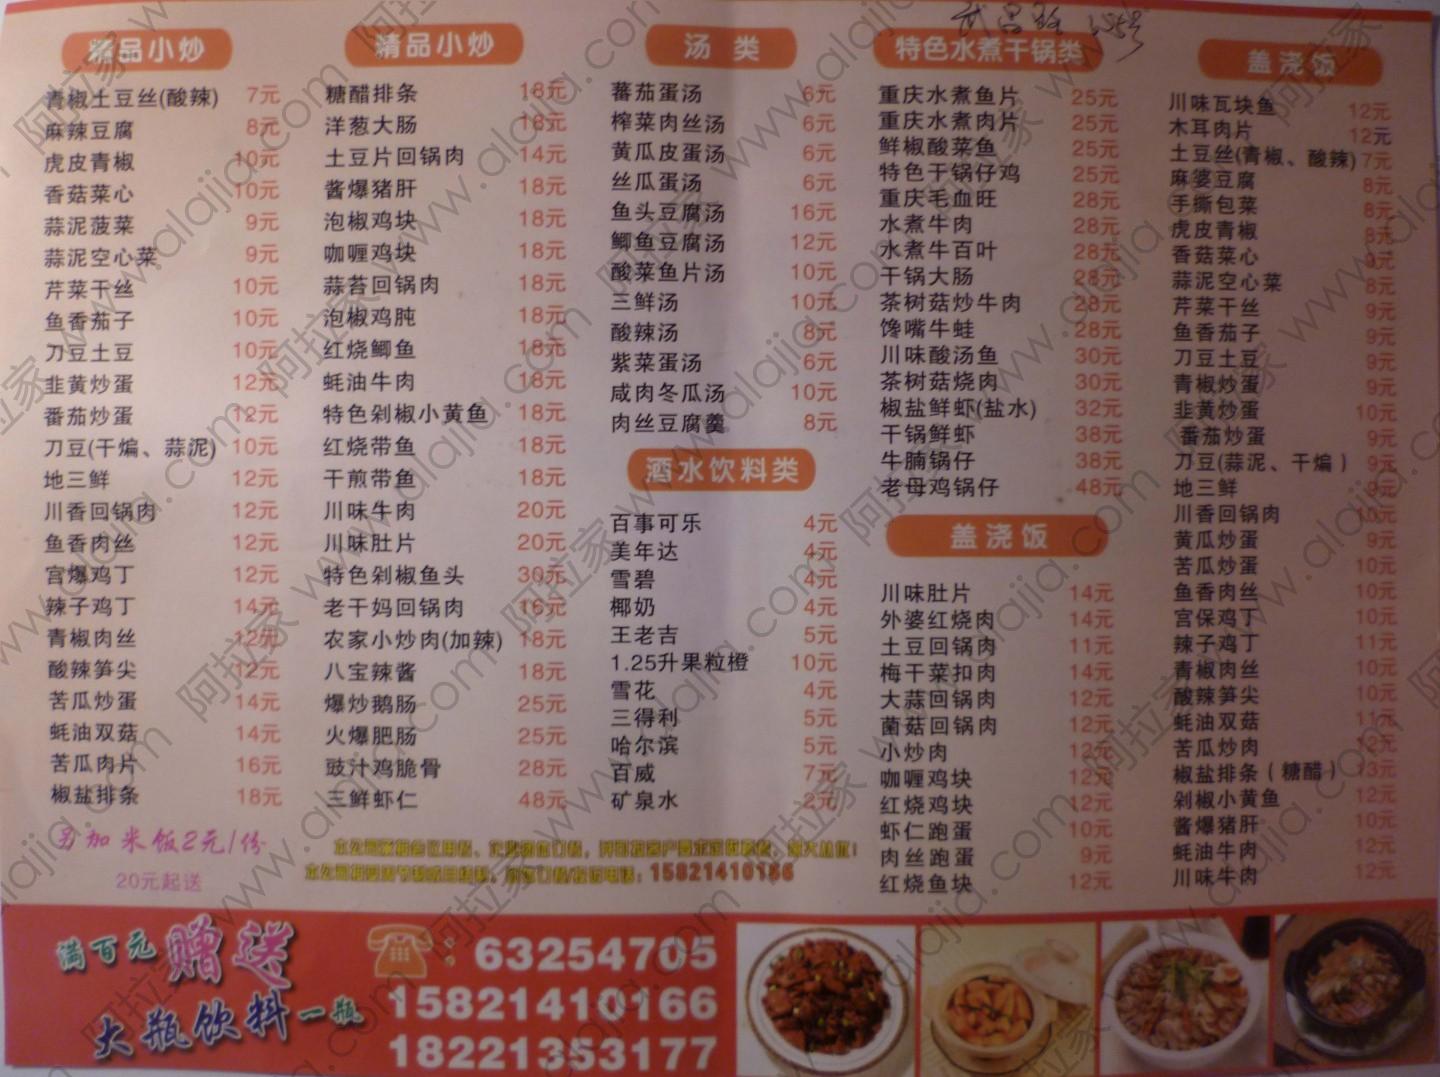 精品小炒
青椒土豆丝(酸辣) 7元
麻辣豆腐 8元
虎皮青椒 10元
香菇菜心 10元
蒜泥菠菜 9元
蒜泥空心菜 9元
芹菜干丝 10元
鱼香茄子 10元
刀豆土豆 10元
韭黄炒蛋 12元
番茄炒蛋 12元
刀豆(干煸、蒜泥) 10元
地三鲜 12元
川香回锅肉 12元
鱼香肉丝 12元
宫爆鸡丁 12元
辣子鸡丁 14元
青椒肉丝 12元
酸辣笋尖 12元
苦瓜炒蛋 14元
蚝油双菇 14元
苦瓜肉片 16元
椒盐排条 18元
另加米饭2元/份
20元起送
精品小炒
糖醋排条 18元
洋葱大肠 18元
土豆片回锅肉 14元
酱爆猪肝 18元
泡椒鸡块 18元
咖喱鸡块 18元
蒜苔回锅肉 18元
泡椒鸡肫 18元
红烧鲫鱼 18元
蚝油牛肉 18元
特色剁椒小黄鱼 18元
红烧带鱼 18元
干煎带鱼 18元
川味牛肉 20元
川味肚片 20元
特色剁椒鱼头 30元
老干妈回锅肉 16元
农家小炒肉(加辣) 18元
八宝辣酱 18元
爆炒鹅肠 25元
火爆肥肠 25元
豉汁鸡脆骨 28元
三鲜虾仁 48元
汤 类
蕃茄蛋汤 6元
榨菜肉丝汤 6元
黄瓜皮蛋汤 6元
丝瓜蛋汤 6元
鱼头豆腐汤 16元
鲫鱼豆腐汤 12元
酸菜鱼片汤 10元
三鲜汤 10元
酸辣汤 8元
紫菜蛋汤 6元
咸肉冬瓜汤 10元
肉丝豆腐羹 8元
酒水饮料类
百事可乐 4元
美年达 4元
雪碧 4元
椰奶 4元
王老吉 5元
1.25升果粒橙 10元
雪花 4元
三得利 5元
哈尔滨 5元
百威 7元
矿泉水 2元
15821410166
特色水煮干锅类
重庆水煮鱼片 25元
重庆水煮肉片 25元
鲜椒酸菜鱼 25元
特色干锅仔鸡 25元
重庆毛血旺 28元
水煮牛肉 28元
水煮牛百叶 28元
干锅大肠 28元
茶树菇炒牛肉 28元
馋嘴牛蛙 28元
川味酸汤鱼 30元
茶树菇烧肉 30元
椒盐鲜虾(盐水) 32元
干锅鲜虾 38元
牛腩锅仔 38元
老母鸡锅仔 48元
盖浇饭
川味肚片 14元
外婆红烧肉 14元
土豆回锅肉 11元
梅干菜扣肉 14元
大蒜回锅肉 12元
菌菇回锅肉 12元
小炒肉 12元
咖喱鸡块 12元
红烧鸡块 12元
虾仁跑蛋 10元
肉丝跑蛋 9元
红烧鱼块 12元
盖浇饭
川味瓦块鱼 12元
木耳肉片 12元
土豆丝(青椒、酸辣) 7元
麻婆豆腐 8元
手撕包菜 8元
虎皮青椒 8元
香菇菜心 9元
蒜泥空心菜 8元
芹菜干丝 9元
鱼香茄子 9元
刀豆土豆 9元
青椒炒蛋 9元
韭黄炒蛋 10元
番茄炒蛋 9元
刀豆(蒜泥、干煸) 9元
地三鲜 9元
川香回锅肉 10元
黄瓜炒蛋 9元
苦瓜炒蛋 10元
鱼香肉丝 10元
宫保鸡丁 10元
辣子鸡丁 11元
青椒肉丝 10元
酸辣笋尖 10元
蚝油双菇 11元
苦瓜炒肉 12元
椒盐排条(糖醋) 13元
剁椒小黄鱼 12元
酱爆猪肝 10元
蚝油牛肉 12元
川味牛肉 12元
满百元赠送
大瓶饮料一瓶
: 63254705
15821410166
18221353177
阿拉家 www.alajia.com